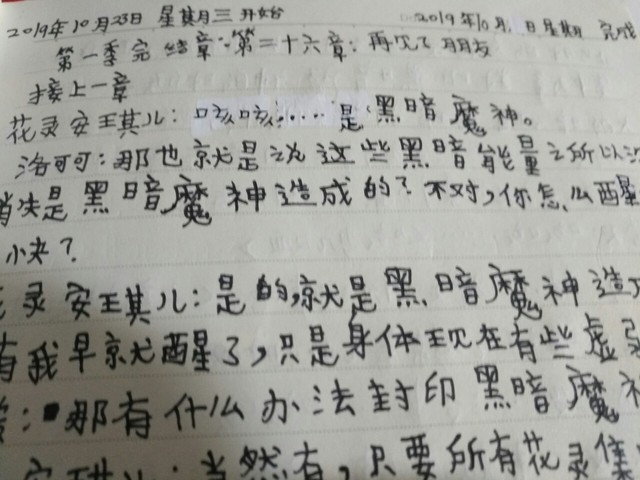 2019年10月23日 星期三 开始 2019年10月 日星期 完成
第一季完结章:第二十六章:再见了朋友
接上一章
花灵安琪儿:咳咳……是黑暗魔神。
洛可可:那也就是说这些黑暗能量之所以没
消失是黑暗魔神造成的?不对,你怎么醒
小夬?
灵安琪儿:是的,就是黑暗魔神造
有我早就醒了,只是身体现在有些虚
:那有什么办法封印黑暗魔神
安琪儿:当然有,只要所有花灵集